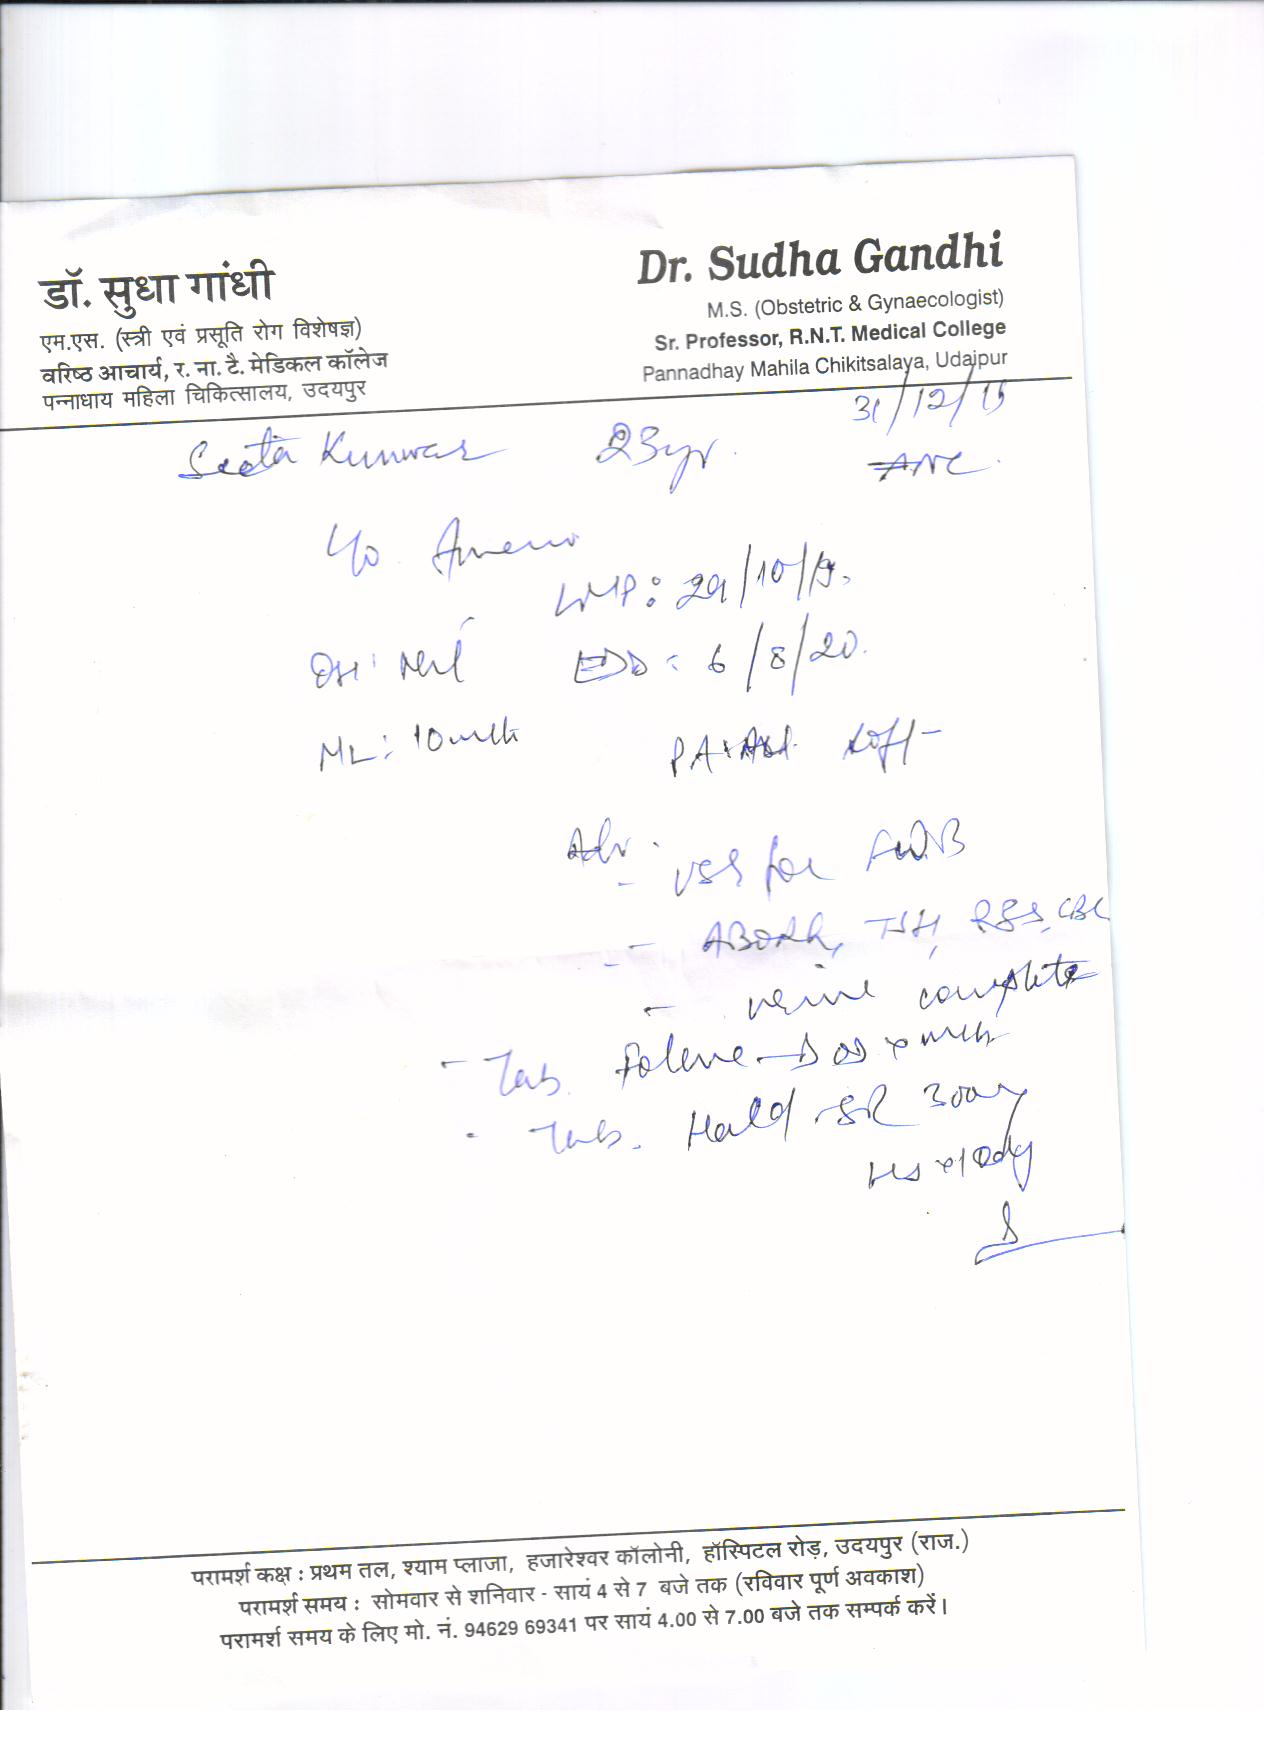 डॉ. सुधा गांधी
एम.एस. (स्त्री एवं प्रसूति रोग विशेषज्ञ)
वरिष्ठ आचार्य, र. ना. टै. मेडिकल कॉलेज
पन्नाधाय महिला चिकित्सालय, उदयपुर
Dr. Sudha Gandhi
M.S. (Obstetric & Gynaecologist)
Sr. Professor, R.N.T. Medical College
Pannadhay Mahila Chikitsalaya, Udaipur
31/12/19
Seeta Kunwar 23yr.
ANC.
LMP: 29/10/19.
EDD: 6/8/20.
ML: 10
PA: soft
Adv.
- USG for FWB
- ABORh, TSH, RBS, CBC
- urine complete
- Tab. OD x
- Tab. SR 300mg
HS x 10 day
परामर्श कक्ष : प्रथम तल, श्याम प्लाजा, हजारेश्वर कॉलोनी, हॉस्पिटल रोड़, उदयपुर (राज.)
परामर्श समय : सोमवार से शनिवार - सायं 4 से 7 बजे तक (रविवार पूर्ण अवकाश)
परामर्श समय के लिए मो. नं. 94629 69341 पर सायं 4.00 से 7.00 बजे तक सम्पर्क करें।